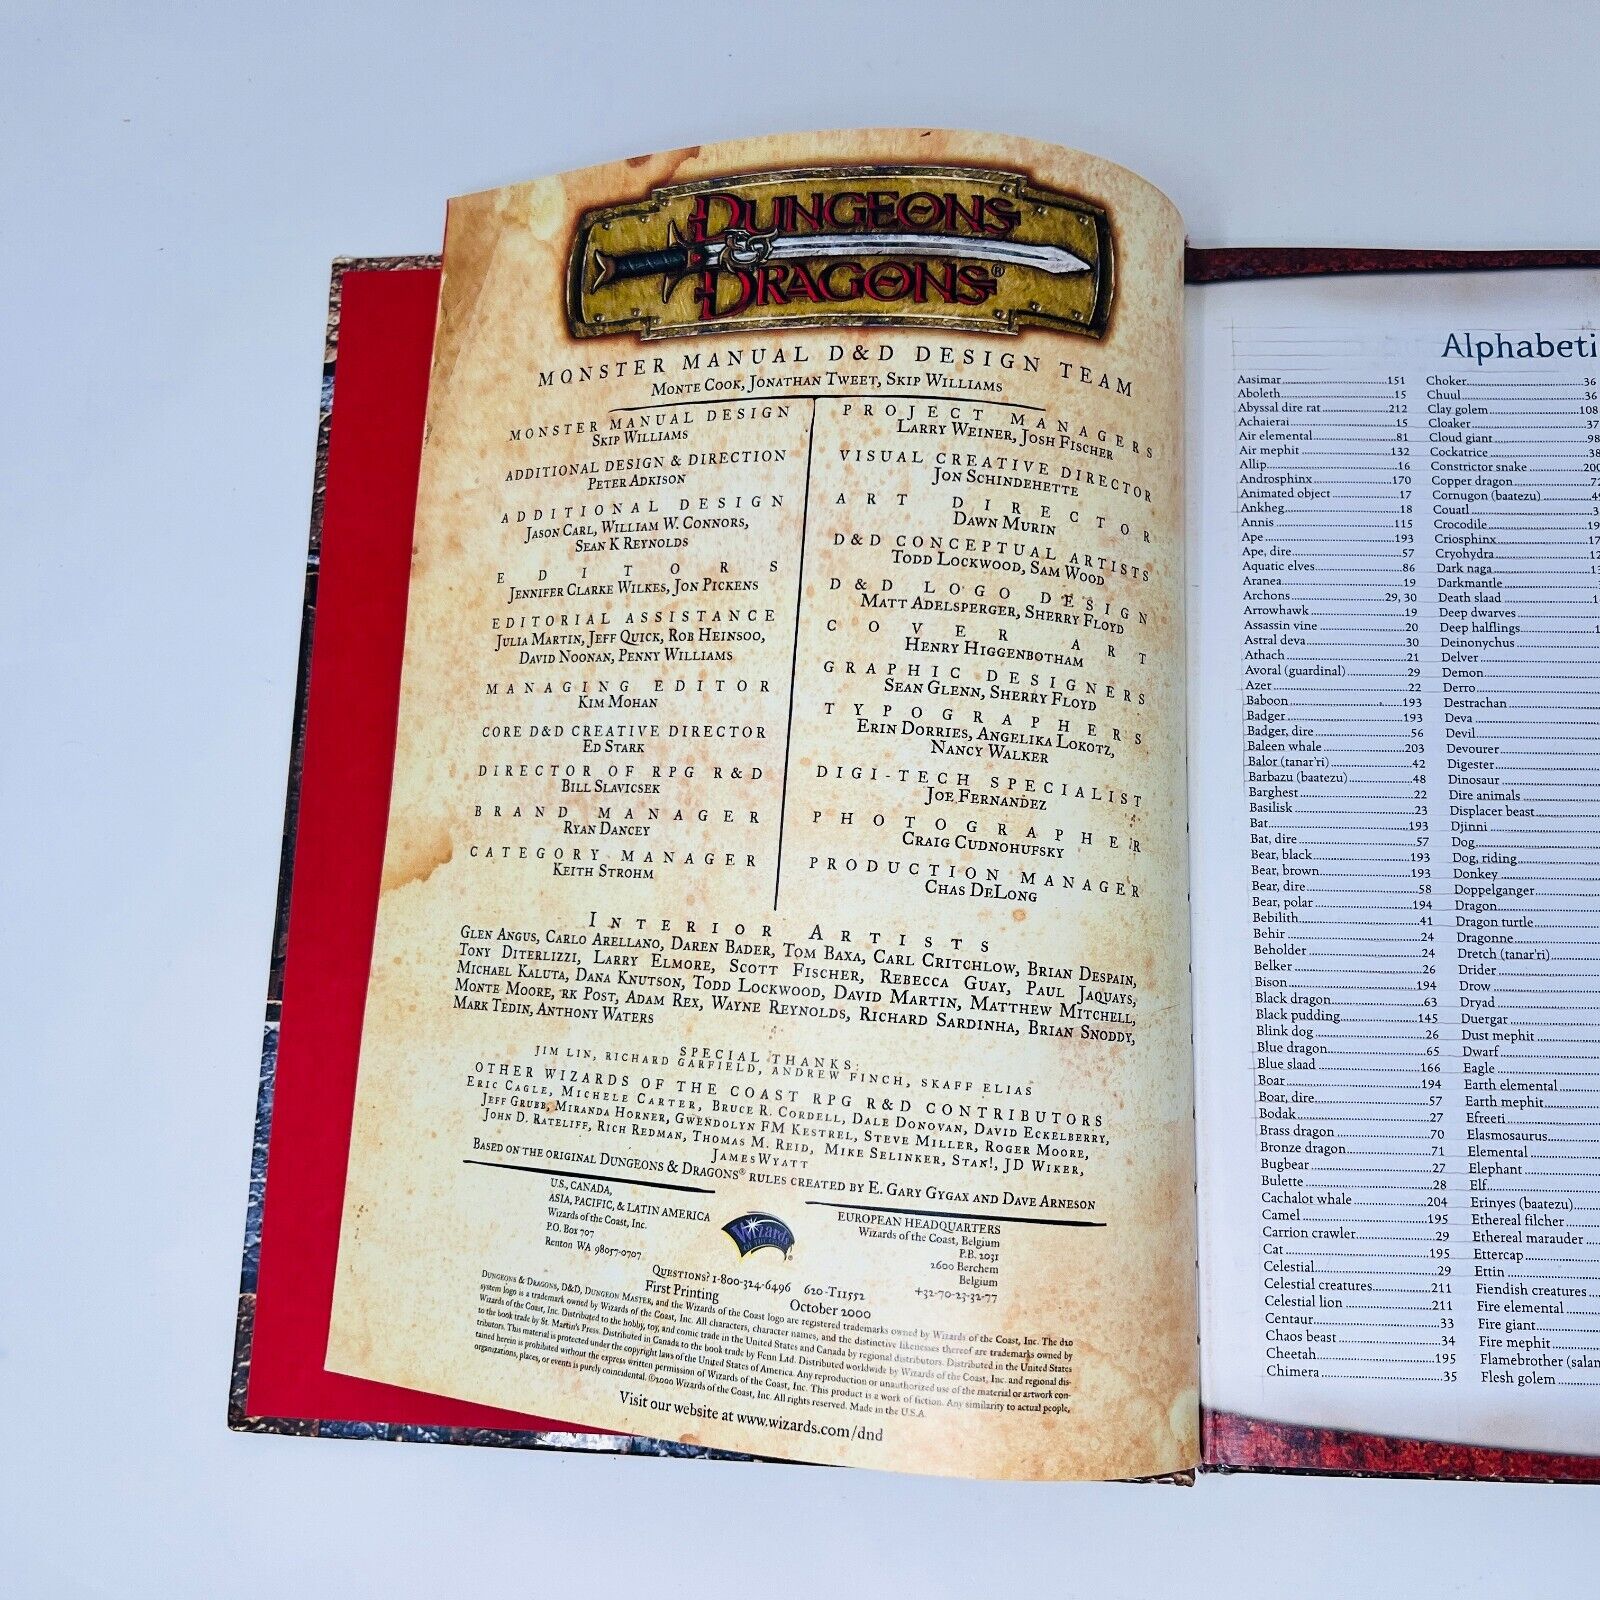 DUNGEONS
& DRAGONS®
MONSTER MANUAL D&D DESIGN TEAM
MONTE COOK, JONATHAN TWEET, SKIP WILLIAMS
MONSTER MANUAL DESIGN
SKIP WILLIAMS
ADDITIONAL DESIGN & DIRECTION
PETER ADKISON
ADDITIONAL DESIGN
JASON CARL, WILLIAM W. CONNORS,
SEAN K REYNOLDS
EDITORS
JENNIFER CLARKE WILKES, JON PICKENS
EDITORIAL ASSISTANCE
JULIA MARTIN, JEFF QUICK, ROB HEINSOO,
DAVID NOONAN, PENNY WILLIAMS
MANAGING EDITOR
KIM MOHAN
CORE D&D CREATIVE DIRECTOR
ED STARK
DIRECTOR OF RPG R&D
BILL SLAVICSEK
BRAND MANAGER
RYAN DANCEY
CATEGORY MANAGER
KEITH STROHM
PROJECT MANAGERS
LARRY WEINER, JOSH FISCHER
VISUAL CREATIVE DIRECTOR
JON SCHINDEHETTE
ART DIRECTOR
DAWN MURIN
D&D CONCEPTUAL ARTISTS
TODD LOCKWOOD, SAM WOOD
D&D LOGO DESIGN
MATT ADELSPERGER, SHERRY FLOYD
COVER ART
HENRY HIGGENBOTHAM
GRAPHIC DESIGNERS
SEAN GLENN, SHERRY FLOYD
TYPOGRAPHERS
ERIN DORRIES, ANGELIKA LOKOTZ,
NANCY WALKER
DIGI-TECH SPECIALIST
JOE FERNANDEZ
PHOTOGRAPHER
CRAIG CUDNOHUFSKY
PRODUCTION MANAGER
CHAS DELONG
INTERIOR ARTISTS
GLEN ANGUS, CARLO ARELLANO, DAREN BADER, TOM BAXA, CARL CRITCHLOW, BRIAN DESPAIN,
TONY DITERLIZZI, LARRY ELMORE, SCOTT FISCHER, REBECCA GUAY, PAUL JAQUAYS,
MICHAEL KALUTA, DANA KNUTSON, TODD LOCKWOOD, DAVID MARTIN, MATTHEW MITCHELL,
MONTE MOORE, RK POST, ADAM REX, WAYNE REYNOLDS, RICHARD SARDINHA, BRIAN SNODDY,
MARK TEDIN, ANTHONY WATERS
SPECIAL THANKS:
JIM LIN, RICHARD GARFIELD, ANDREW FINCH, SKAFF ELIAS
OTHER WIZARDS OF THE COAST RPG R&D CONTRIBUTORS
ERIC CAGLE, MICHELE CARTER, BRUCE R. CORDELL, DALE DONOVAN, DAVID ECKELBERRY,
JEFF GRUBB, MIRANDA HORNER, GWENDOLYN FM KESTREL, STEVE MILLER, ROGER MOORE,
JOHN D. RATELIFF, RICH REDMAN, THOMAS M. REID, MIKE SELINKER, STAN!, JD WIKER,
JAMES WYATT
BASED ON THE ORIGINAL DUNGEONS & DRAGONS® RULES CREATED BY E. GARY GYGAX AND DAVE ARNESON
U.S., CANADA,
ASIA, PACIFIC, & LATIN AMERICA
Wizards of the Coast, Inc.
P.O. Box 707
Renton WA 98057-0707
Wizards
OF THE COAST
EUROPEAN HEADQUARTERS
Wizards of the Coast, Belgium
P.B. 2031
2600 Berchem
Belgium
+32-70-23-32-77
QUESTIONS? 1-800-324-6496 620-T11552
First Printing October 2000
DUNGEONS & DRAGONS, D&D, DUNGEON MASTER, and the Wizards of the Coast logo are registered trademarks owned by Wizards of the Coast, Inc. The d20
system logo is a trademark owned by Wizards of the Coast, Inc. All characters, character names, and the distinctive likenesses thereof are trademarks owned by
Wizards of the Coast, Inc. Distributed to the hobby, toy, and comic trade in the United States and Canada by regional distributors. Distributed in the United States
to the book trade by St. Martin's Press. Distributed in Canada to the book trade by Fenn Ltd. Distributed worldwide by Wizards of the Coast, Inc. and regional dis-
tributors. This material is protected under the copyright laws of the United States of America. Any reproduction or unauthorized use of the material or artwork con-
tained herein is prohibited without the express written permission of Wizards of the Coast, Inc. This product is a work of fiction. Any similarity to actual people,
organizations, places, or events is purely coincidental. ©2000 Wizards of the Coast, Inc. All rights reserved. Made in the U.S.A.
Visit our website at www.wizards.com/dnd
Alphabeti
Aasimar 151
Aboleth 15
Abyssal dire rat 212
Achaierai 15
Air elemental 81
Air mephit 132
Allip 16
Androsphinx 170
Animated object 17
Ankheg 18
Annis 115
Ape 193
Ape, dire 57
Aquatic elves 86
Aranea 19
Archons 29, 30
Arrowhawk 19
Assassin vine 20
Astral deva 30
Athach 21
Avoral (guardinal) 29
Azer 22
Baboon 193
Badger 193
Badger, dire 56
Baleen whale 203
Balor (tanar'ri) 42
Barbazu (baatezu) 48
Barghest 22
Basilisk 23
Bat 193
Bat, dire 57
Bear, black 193
Bear, brown 193
Bear, dire 58
Bear, polar 194
Bebilith 41
Behir 24
Beholder 24
Belker 26
Bison 194
Black dragon 63
Black pudding 145
Blink dog 26
Blue dragon 65
Blue slaad 166
Boar 194
Boar, dire 57
Bodak 27
Brass dragon 70
Bronze dragon 71
Bugbear 27
Bulette 28
Cachalot whale 204
Camel 195
Carrion crawler 29
Cat 195
Celestial 29
Celestial creatures 211
Celestial lion 211
Centaur 33
Chaos beast 34
Cheetah 195
Chimera 35
Choker 36
Chuul 36
Clay golem 108
Cloaker 37
Cloud giant 98
Cockatrice 38
Constrictor snake 200
Copper dragon 72
Cornugon (baatezu)
Couatl
Crocodile
Criosphinx
Cryohydra
Dark naga
Darkmantle
Death slaad
Deep dwarves
Deep halflings
Deinonychus
Delver
Demon
Derro
Destrachan
Deva
Devil
Devourer
Digester
Dinosaur
Dire animals
Displacer beast
Djinni
Dog
Dog, riding
Donkey
Doppelganger
Dragon
Dragon turtle
Dragonne
Dretch (tanar'ri)
Drider
Drow
Dryad
Duergar
Dust mephit
Dwarf
Eagle
Earth elemental
Earth mephit
Efreeti
Elasmosaurus
Elemental
Elephant
Elf
Erinyes (baatezu)
Ethereal filcher
Ethereal marauder
Ettercap
Ettin
Fiendish creatures
Fire elemental
Fire giant
Fire mephit
Flamebrother (salam
Flesh golem